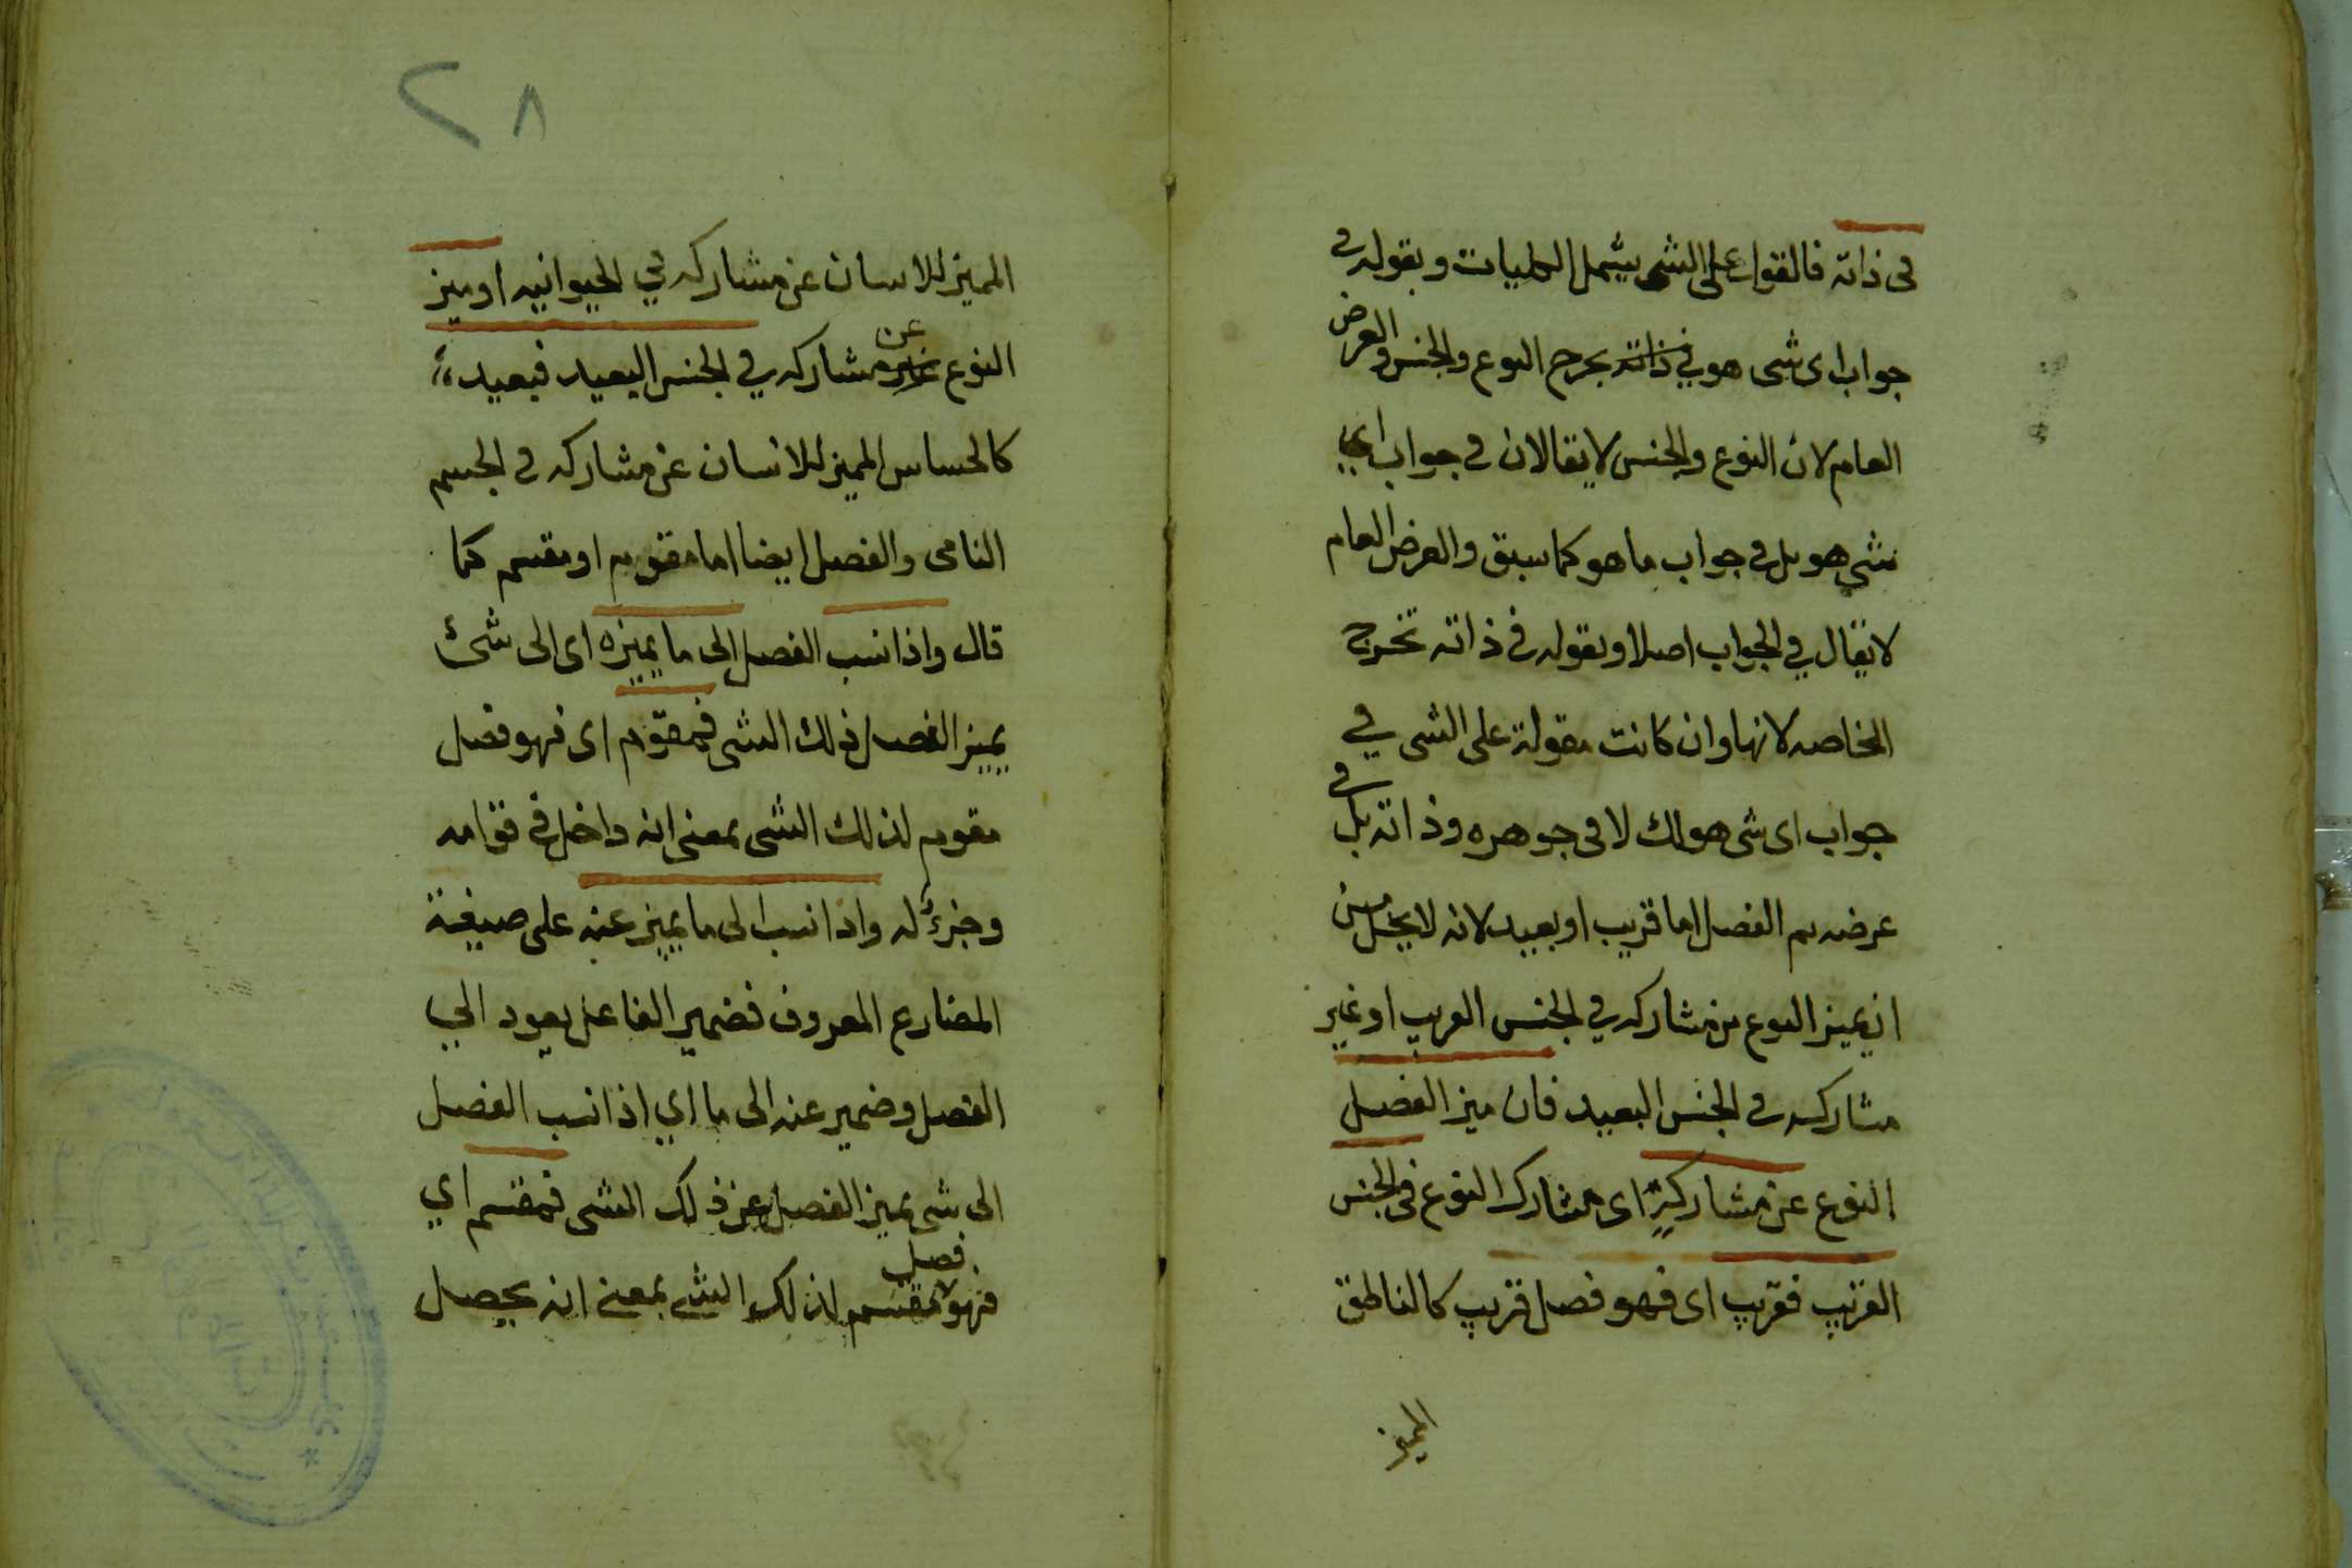 فى ذاته فالقول على الشى يشمل الكليات وبقوله فى
جواب اى شى هو في ذاته يخرج النوع والجنس والعرض
العام لان النوع والجنس لا يقالان فى جواب اي
شي هو بل فى جواب ما هو كما سبق والعرض العام
لا يقال في الجواب اصلا وبقوله فى ذاته تخرج
الخاصه لانها وان كانت مقولة على الشى في
جواب اى شى هو لك لا فى جوهره وذاته بل فى
عرضه ثم الفصل اما قريب او بعيد لانه لا يخل من
ان يميز النوع من مشاركه في الجنس القريب او غير
مشاركه فى الجنس البعيد فان ميز الفصل
النوع عن مشاركه اى مشارك النوع فى الجنس
القريب فقريب اى فهو فصل قريب كالناطق
المميز
٢٨
المميز للانسان عن مشاركه في الحيوانيه او ميز
النوع عن مشاركه في الجنس البعيد فبعيد
كالحساس المميز للانسان عن مشاركه فى الجسم
النامى والفصل ايضا اما مقوم او مقسم كما
قال واذا نسب الفصل الى ما يميزه اى الى شئ
يميز الفصل ذلك الشى فمقوّم اى فهو فصل
مقوم لذلك الشى بمعنى انه داخل فى قوامه
وجزء له واذا نسب الى ما يميز عنه على صيغة
المضارع المعروف فضمير الفاعل يعود الي
الفصل وضمير عنه الى ما اي اذا نسب الفصل
الى شى يميز الفصل عن ذلك الشى فمقسم اي
فهو فصل مقسم لذلك الشي بمعنى انه يحصل